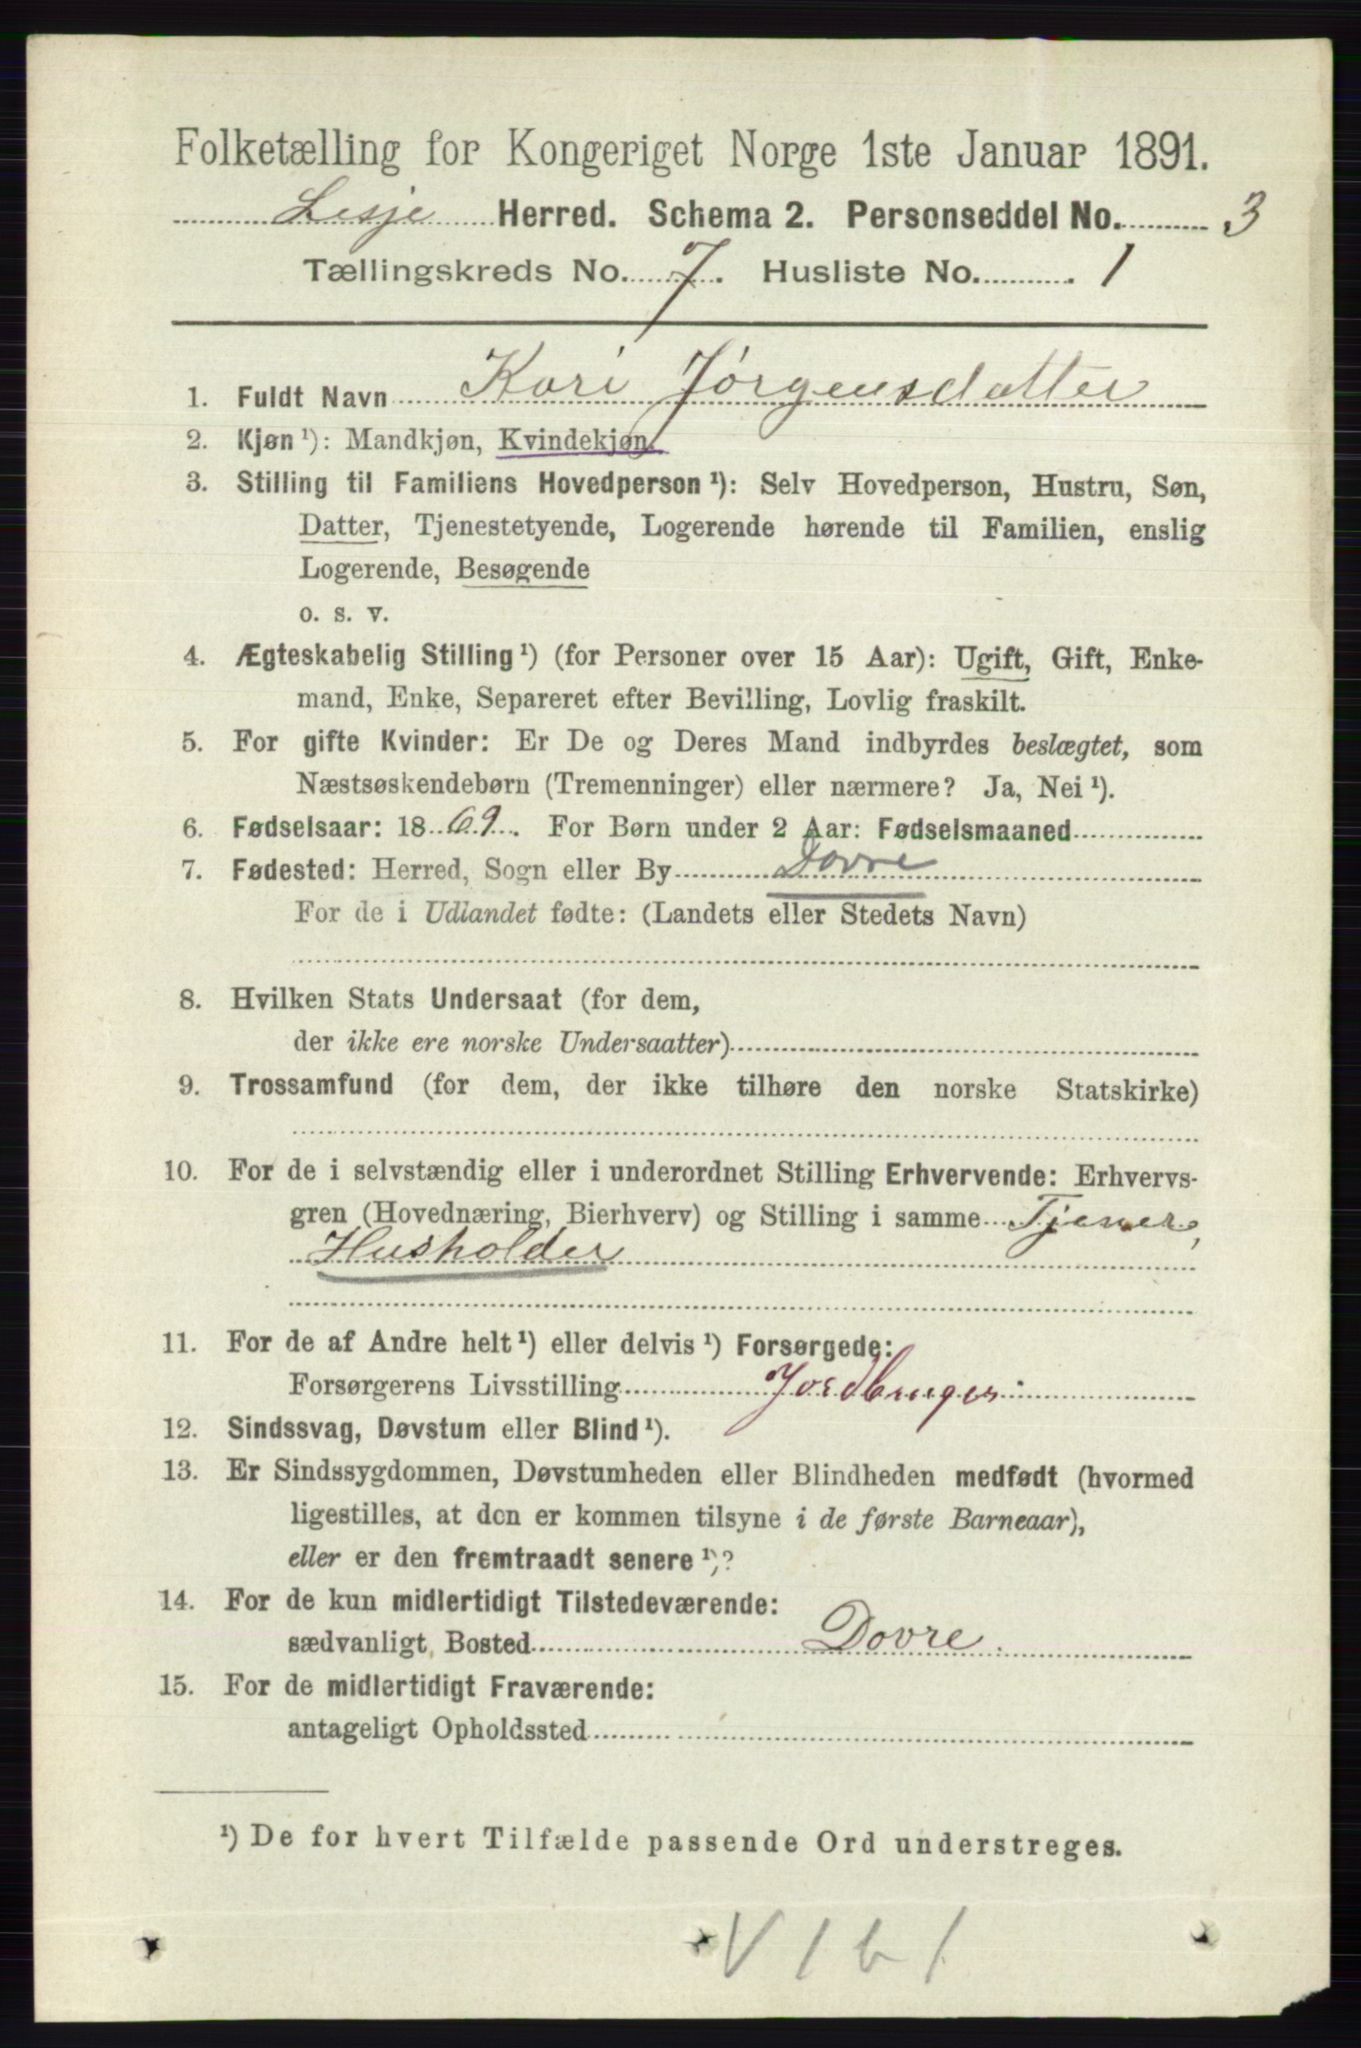 Folketælling for Kongeriget Norge 1ste Januar 1891.
Lesje Herred. Schema 2. Personseddel No. 3
Tællingskreds No. 7. Husliste No. 1
1. Fuldt Navn Kari Jørgensdatter
2. Kjøn ¹): Mandkjøn, Kvindekjøn.
3. Stilling til Familiens Hovedperson ¹): Selv Hovedperson, Hustru, Søn,
Datter, Tjenestetyende, Logerende hørende til Familien, enslig
Logerende, Besøgende
o. s. v.
4. Ægteskabelig Stilling ¹) (for Personer over 15 Aar): Ugift, Gift, Enke-
mand, Enke, Separeret efter Bevilling, Lovlig fraskilt.
5. For gifte Kvinder: Er De og Deres Mand indbyrdes beslægtet, som
Næstsøskendebørn (Tremenninger) eller nærmere? Ja, Nei ¹).
6. Fødselsaar: 1869. For Børn under 2 Aar: Fødselsmaaned
7. Fødested: Herred, Sogn eller By Dovre
For de i Udlandet fødte: (Landets eller Stedets Navn)
8. Hvilken Stats Undersaat (for dem,
der ikke ere norske Undersaatter)
9. Trossamfund (for dem, der ikke tilhøre den norske Statskirke)
10. For de i selvstændig eller i underordnet Stilling Erhvervende: Erhvervs-
gren (Hovednæring, Bierhverv) og Stilling i samme Tjener,
Husholder
11. For de af Andre helt ¹) eller delvis ¹) Forsørgede:
Forsørgerens Livsstilling Jordbruger
12. Sindssvag, Døvstum eller Blind ¹).
13. Er Sindssygdommen, Døvstumheden eller Blindheden medfødt (hvormed
ligestilles, at den er kommen tilsyne i de første Barneaar),
eller er den fremtraadt senere ¹)?
14. For de kun midlertidigt Tilstedeværende:
sædvanligt Bosted Dovre.
15. For de midlertidigt Fraværende:
antageligt Opholdssted
¹) De for hvert Tilfælde passende Ord understreges.
V 1 b 1